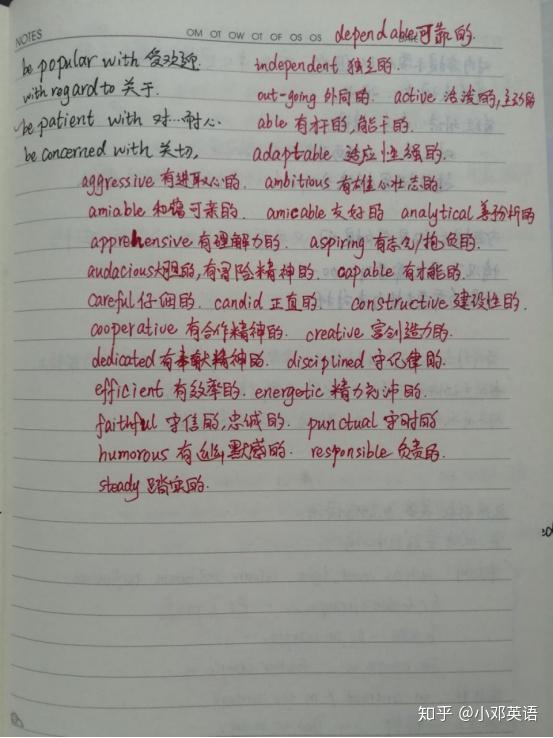 NOTES
OM OT OW OT OF OS OS
dependable 可靠的
be popular with 受欢迎. independent 独立的
with regard to 关于. out-going 外向的. active 活泼的,主动的
be patient with 对…耐心. able 有才的,能干的.
be concerned with 关切. adaptable 适应性强的.
aggressive 有进取心的. ambitious 有雄心壮志的.
amiable 和蔼可亲的. amicable 友好的 analytical 善分析的
apprehensive 有理解力的. aspiring 有志气/抱负的.
audacious大胆的,有冒险精神的. capable 有才能的.
careful 仔细的. candid 正直的. constructive 建设性的.
cooperative 有合作精神的. creative 富创造力的.
dedicated 有奉献精神的. disciplined 守纪律的.
efficient 有效率的. energetic 精力充沛的.
faithful 守信的,忠诚的. punctual 守时的
humorous 有幽默感的. responsible 负责的.
steady 踏实的.
知乎 @小邓英语